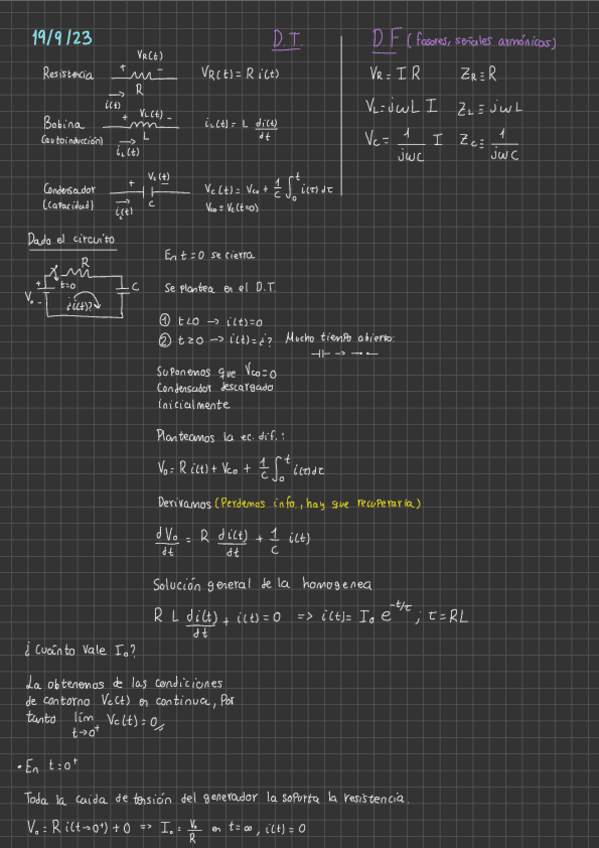 19/9/23
D.T.
D.F (fasores, señales armónicas)
Resistencia + VR(t) - R i(t) VR(t) = R i(t)
VR = I R ZR ≡ R
Bobina (autoinducción) + VL(t) - L iL(t) iL(t) = L di(t)/dt
VL = jωL I ZL ≡ jωL
Condensador (capacidad) + Vc(t) - C ic(t) Vc(t) = Vco + 1/C ∫₀ᵗ i(τ) dτ
Vco = Vc(t=0)
Vc = 1/jωC I Zc ≡ 1/jωC
Dado el circuito
R t=0 + Vo - C ¿i(t)?
En t=0 se cierra
Se plantea en el D.T.
① t<0 → i(t)=0
② t≥0 → i(t)=¿? Mucho tiempo abierto:
Suponemos que Vco=0
Condensador descargado
inicialmente
Planteamos la ec. dif.:
Vo = R i(t) + Vco + 1/C ∫₀ᵗ i(τ)dτ
Derivamos (Perdemos info., hay que recuperarla)
dVo/dt = R di(t)/dt + 1/C i(t)
Solución general de la homogenea
R L di(t)/dt + i(t) = 0 => i(t) = Io e^-t/τ ; τ = RL
¿Cuánto vale Io?
La obtenemos de las condiciones
de contorno Vc(t) en continua, Por
tanto lím t→0⁺ Vc(t) = 0
• En t=0⁺
Toda la caida de tensión del generador la soporta la resistencia.
Vo = R i(t→0⁺) + 0 => Io = Vo/R en t=∞, i(t)=0